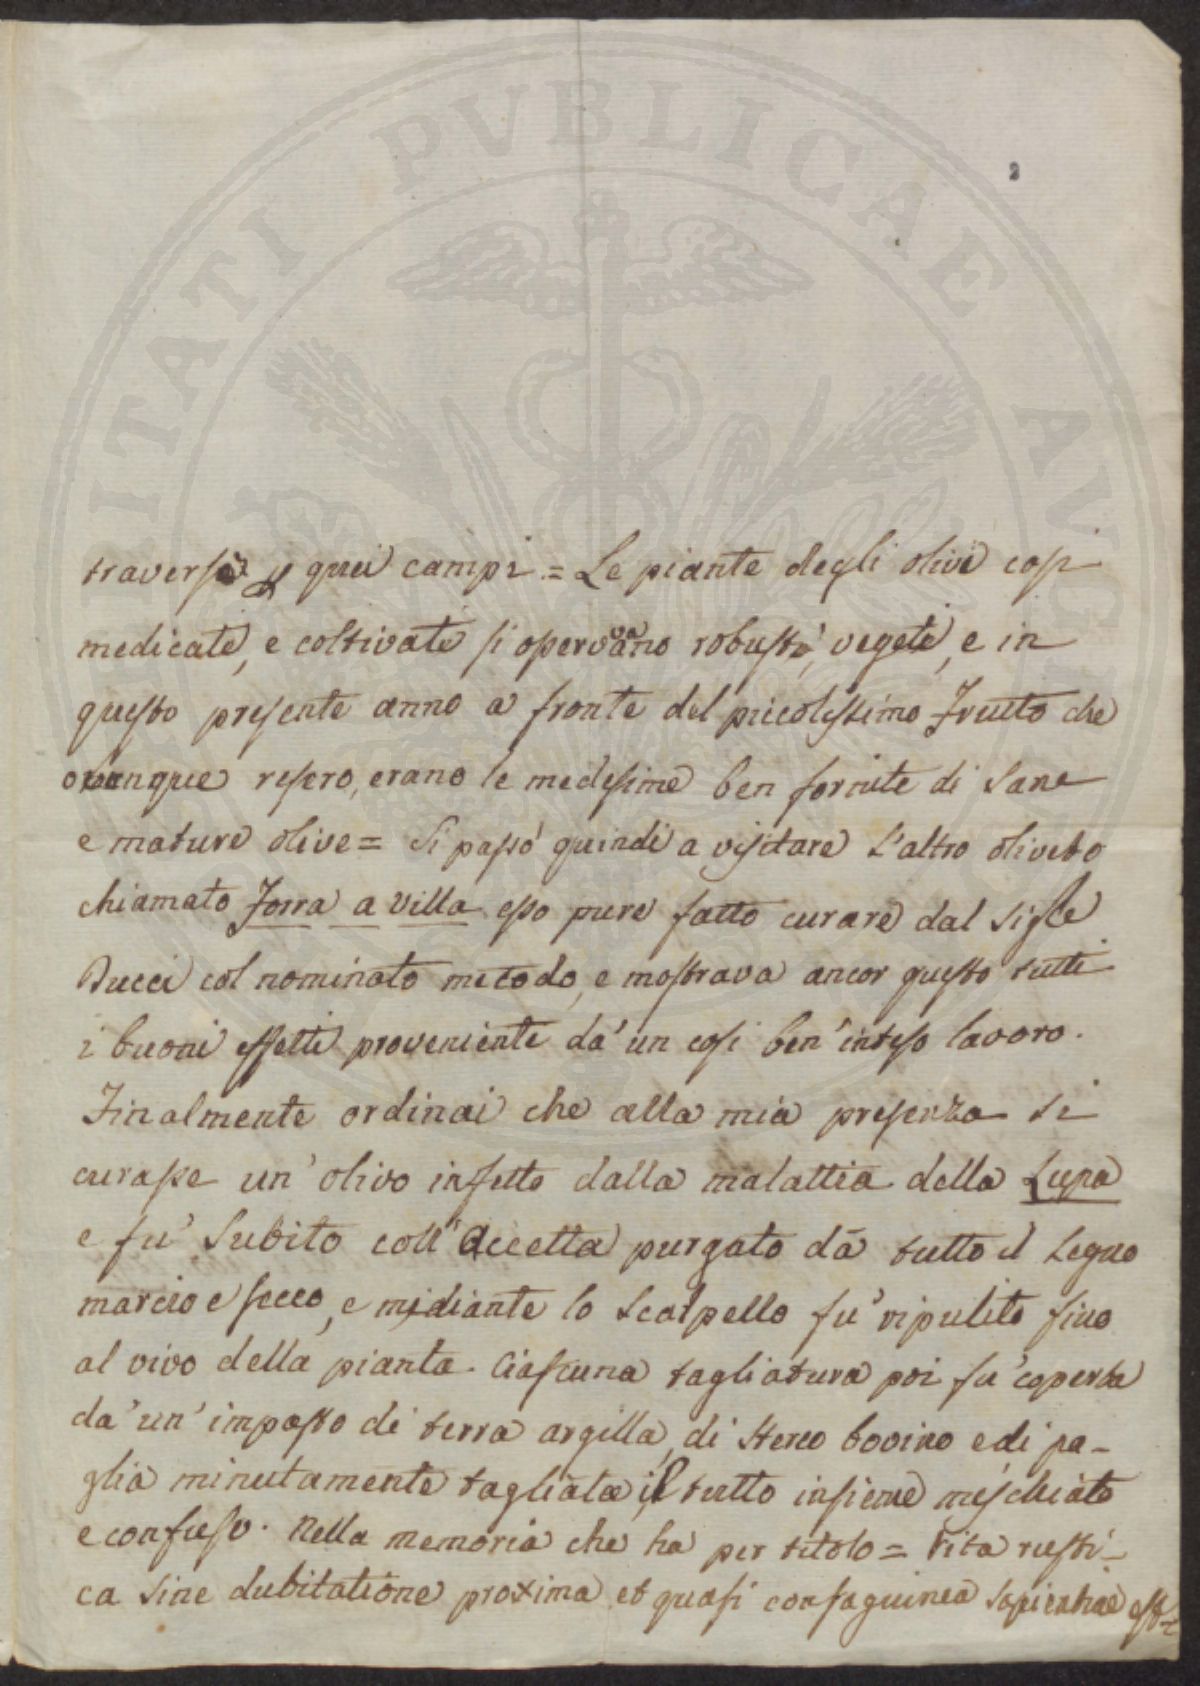 2
traversi p quei campi = Le piante degli olivi cosi
medicate, e coltivate si osservavano robuste, vegete, e in
questo presente anno a fronte del piccolissimo Frutto che
ovunque resero, erano le medesime ben fornite di sane
e mature olive = Si passò quindi a visitare l'altro oliveto
chiamato Forra a Villa esso pure fatto curare dal Sigle
Ducci col nominato metodo, e mostrava ancor questo tutti
i buoni effetti proveniente da' un cosi ben' inteso lavoro.
Finalmente ordinai che alla mia presenza si
curasse un' olivo infetto dalla malattia della Lupa
e fu' subito coll' Accetta purgato dà tutto il Legno
marcio e secco, e mediante lo scalpello fu' ripulito fino
al vivo della pianta. Ciascuna tagliatura poi fu' coperta
da' un' impasto di terra argilla, di sterco bovino e di pa-
glia minutamente tagliata il tutto insieme mischiato
e confuso. Nella memoria che ha per titolo = Vita rusti-
ca sine dubitatione proxima et quasi consaguinea sapientiae est =
PVBLICAE